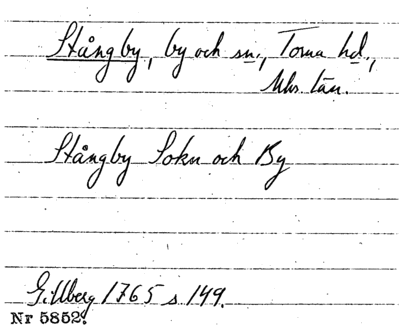 Stångby, by och sn., Torna hd.,
Mhs. län.
Stångby Sokn och By
Gillberg 1765 s. 149.
Nr 5852.